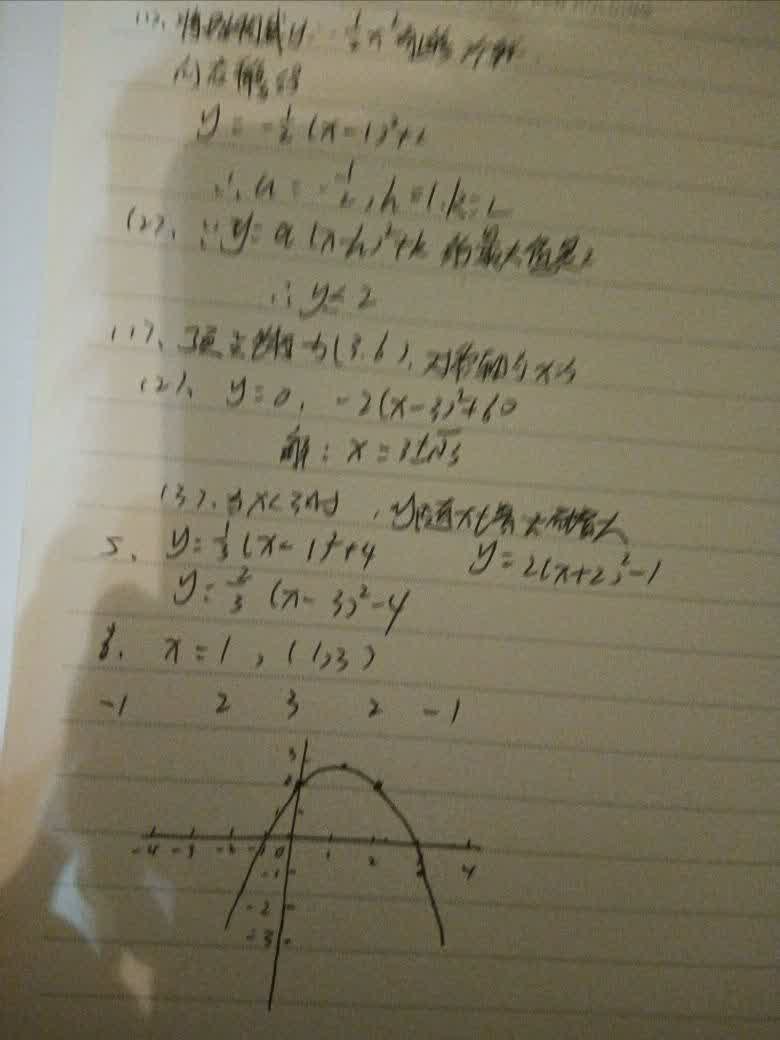 (1)、
y = -½(x-1)²+2
∴ a = -½, h=1, k=2
(2)、∵ y = a(x-h)²+k 的最大值是2
∴ y≤2
(1)、顶点坐标为(3,6), 对称轴为x=3
(2)、y=0, -2(x-3)²+6=0
解: x = 3±√3
(3)、当x<3时, y随x增大而增大
5、y=⅓(x-1)²+4 y=2(x+2)²-1
y=⅔(x-3)²-4
x=1, (1,3)
-1 2 3 2 -1
3
2
1
-4 -3 -2 -1 0 1 2 3 4
-1
-2
-3